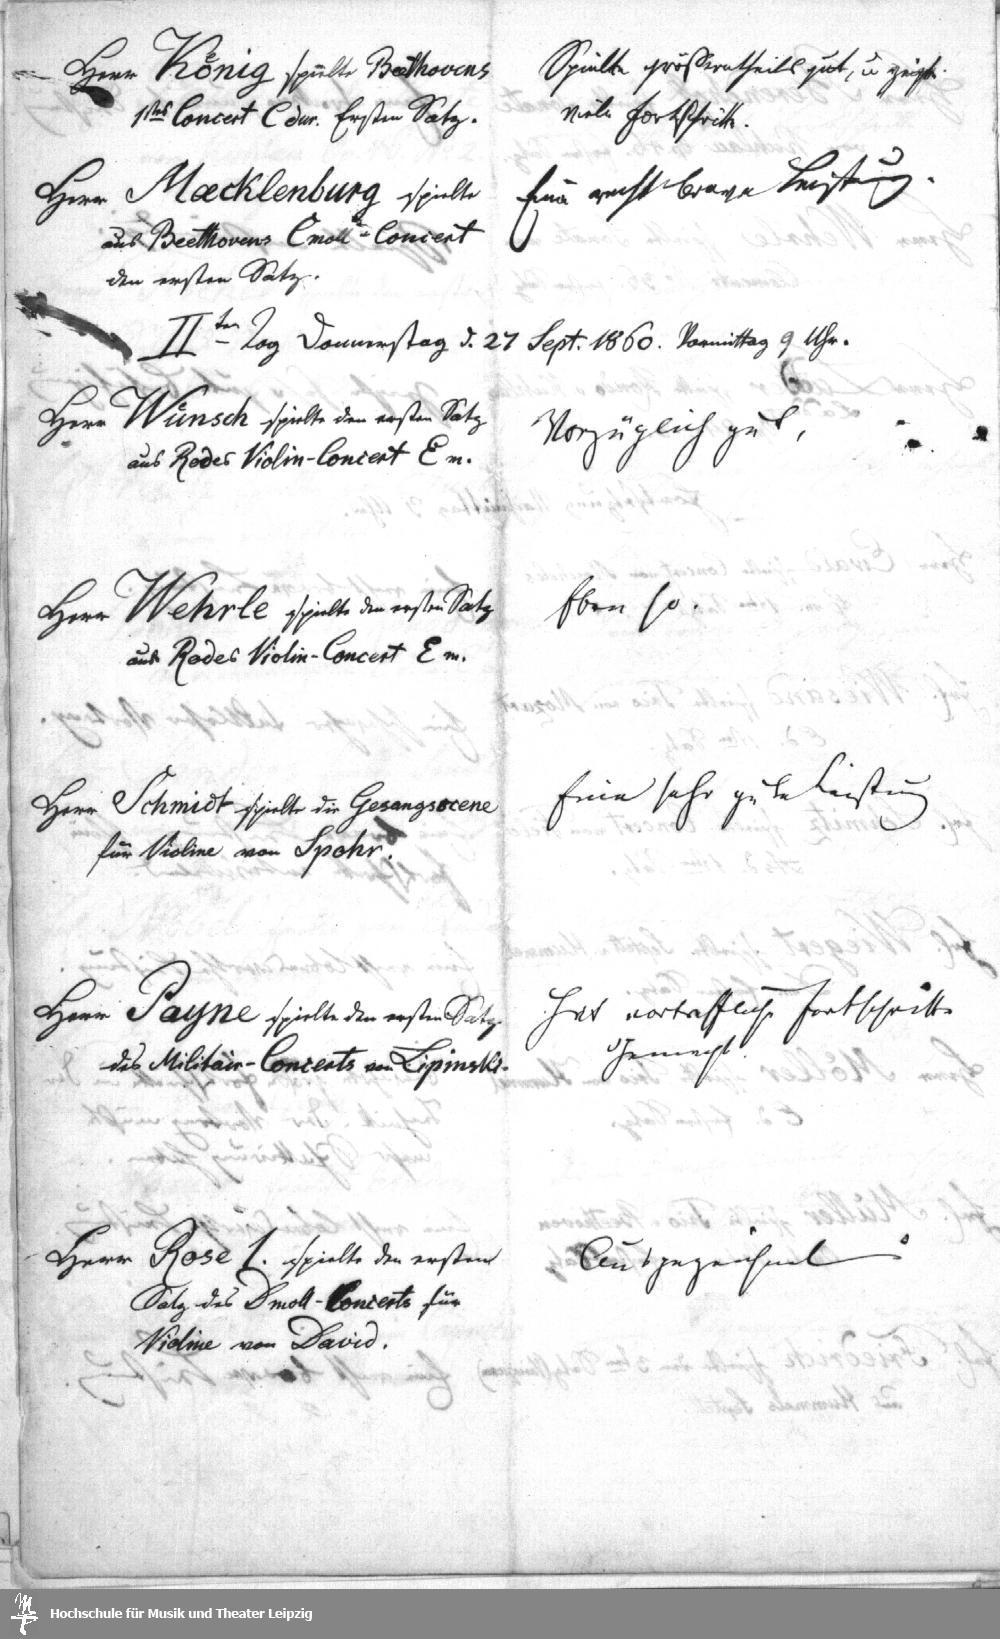 Herr König spielte Beethovens
1stes Concert C dur. Ersten Satz.
Spielte größerntheils gut, u zeigte
viele Fortschritte.
Herr Maecklenburg spielte
aus Beethovens Cmoll-Concert
den ersten Satz.
Eine recht brave Leistung.
IIter Tag Donnerstag d. 27 Sept. 1860. Vormittag 9 Uhr.
Herr Wünsch spielte den ersten Satz
aus Rodes Violin-Concert E m.
Vorzüglich gut,
Herr Wehrle spielte den ersten Satz
aus Rodes Violin-Concert E m.
Eben so.
Herr Schmidt spielte die Gesangsscene
für Violine von Spohr.
Eine sehr gute Leistung
Herr Payne spielte den ersten Satz
des Militair-Concerts von Lipinski.
Hat vortreffliche Fortschritte
gemacht.
Herr Rose 1. spielte den ersten
Satz des Dmoll-Concerts für
Violine von David.
Ausgezeichnet
Hochschule für Musik und Theater Leipzig